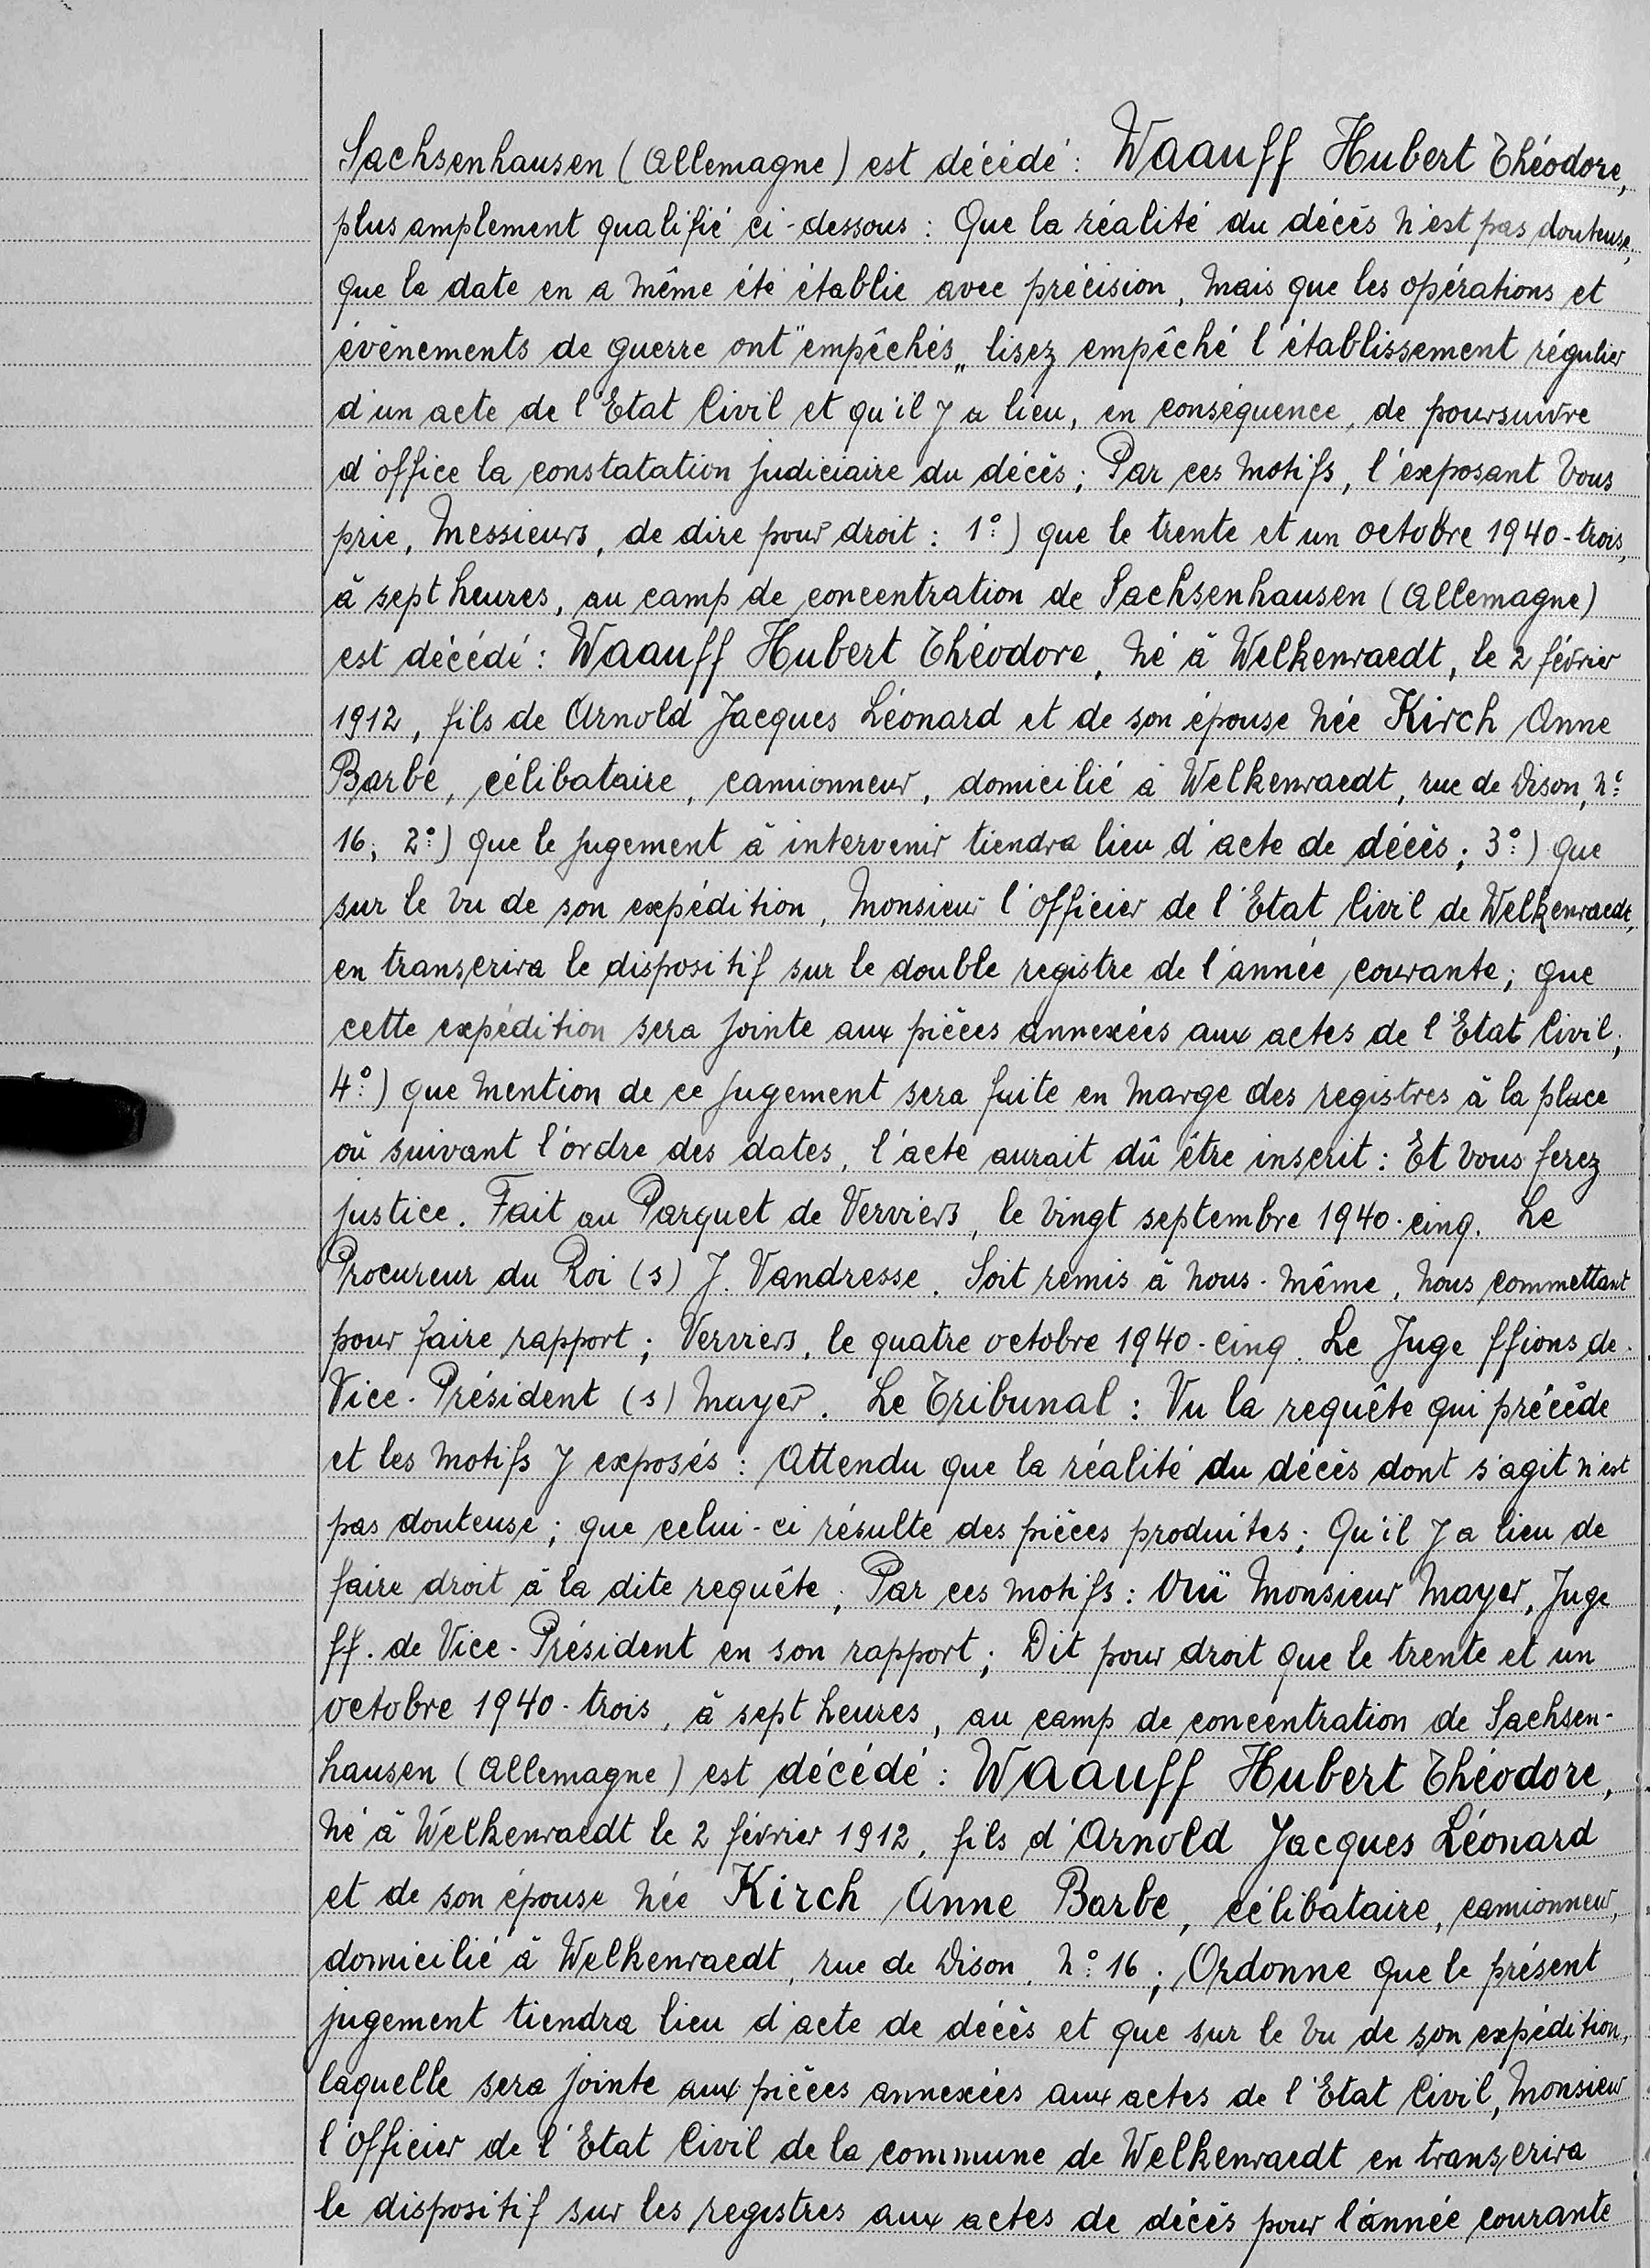 Sachsenhausen (Allemagne) est décédé : Waauff Hubert Théodore,
plus amplement qualifié ci-dessous : Que la réalité du décès n'est pas douteuse,
que la date en a même été établie avec précision, mais que les opérations et
évènements de guerre ont "empêchés„ lisez empêché l'établissement régulier
d'un acte de l'Etat Civil et qu'il y a lieu, en conséquence, de poursuivre
d'office la constatation judiciaire du décès ; Par ces motifs, l'exposant Vous
prie, Messieurs, de dire pour droit : 1°.) que le trente et un octobre 1940-trois,
à sept heures, au camp de concentration de Sachsenhausen (Allemagne)
est décédé : Waauff Hubert Théodore, né à Welkenraedt, le 2 février
1912, fils de Arnold Jacques Léonard et de son épouse née Kirch Anne
Barbe, célibataire, camionneur, domicilié à Welkenraedt, rue de Dison, n°.
16 ; 2°.) que le jugement à intervenir tiendra lieu d'acte de décès ; 3°.) que
sur le vu de son expédition, Monsieur l'Officier de l'Etat Civil de Welkenraedt,
en transcrira le dispositif sur le double registre de l'année courante ; que
cette expédition sera jointe aux pièces annexées aux actes de l'Etat Civil ;
4°.) que mention de ce jugement sera faite en marge des registres à la place
où suivant l'ordre des dates, l'acte aurait dû être inscrit : Et vous ferez
justice. Fait au Parquet de Verviers, le vingt septembre 1940-cinq. Le
Procureur du Roi (s) J. Vandresse. Soit remis à nous-même, nous commettant
pour faire rapport ; Verviers, le quatre octobre 1940-cinq. Le Juge ffions de
Vice-Président (s) Mayer. Le Tribunal : Vu la requête qui précède
et les motifs y exposés : Attendu que la réalité du décès dont s'agit n'est
pas douteuse ; que celui-ci résulte des pièces produites ; Qu'il y a lieu de
faire droit à la dite requête ; Par ces motifs : Ouï Monsieur Mayer, Juge
ff. de Vice-Président en son rapport ; Dit pour droit que le trente et un
octobre 1940-trois, à sept heures, au camp de concentration de Sachsen-
hausen (Allemagne) est décédé : Waauff Hubert Théodore,
né à Welkenraedt le 2 février 1912, fils d'Arnold Jacques Léonard
et de son épouse née Kirch Anne Barbe, célibataire, camionneur,
domicilié à Welkenraedt, rue de Dison, n°. 16 ; Ordonne que le présent
jugement tiendra lieu d'acte de décès et que sur le vu de son expédition,
laquelle sera jointe aux pièces annexées aux actes de l'Etat Civil, Monsieur
l'Officier de l'Etat Civil de la commune de Welkenraedt en transcrira
le dispositif sur les registres aux actes de décès pour l'année courante